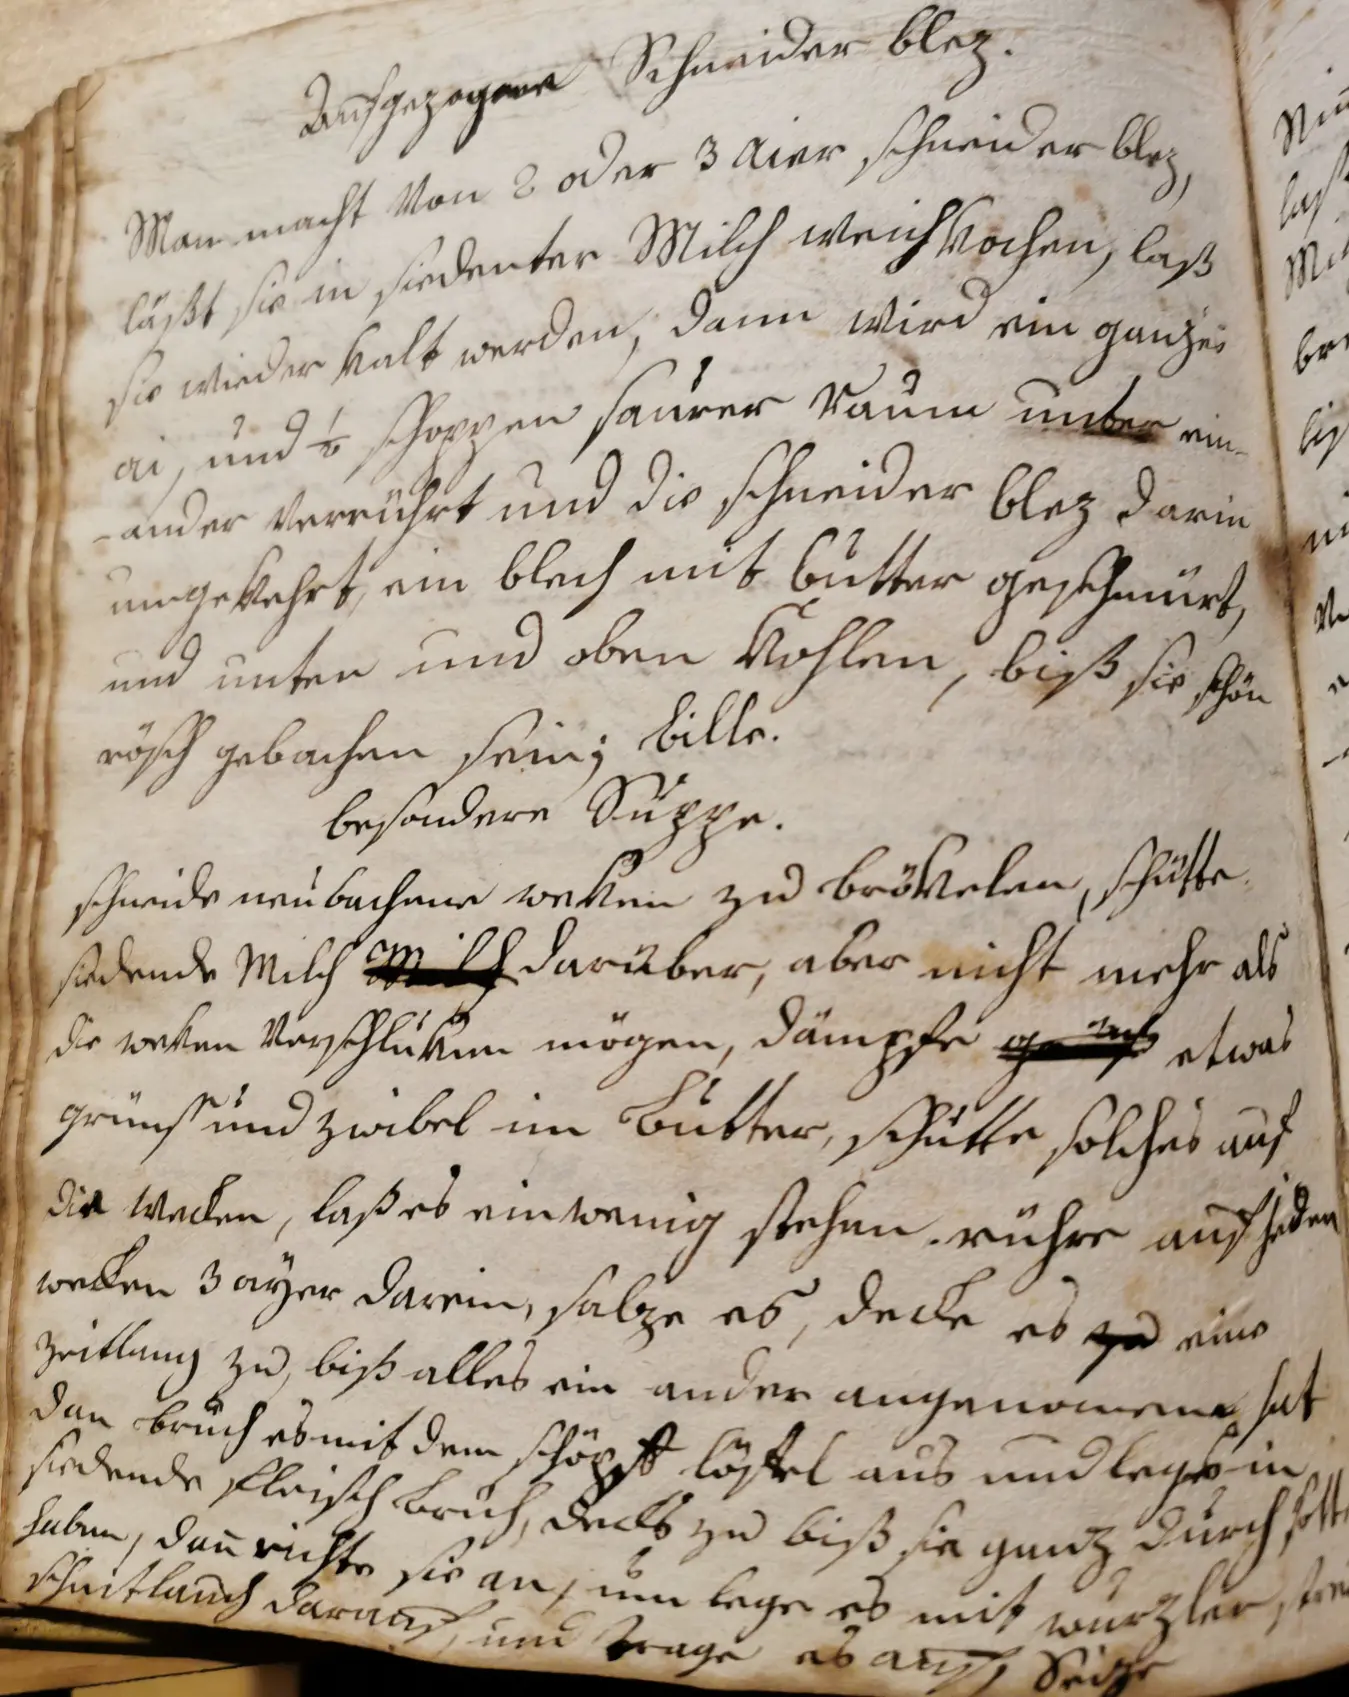 Aufgezogene Schneider blez.
Man macht Von 2 oder 3 Aier schneider blez,
läßt sie in siedenter Milch weich kochen, laß
sie wieder kalt werden, dann wird ein ganzes
ai, und ½ schoppen saurer raum unter ein-
-ander verrührt und die schneider blez darin
umgekehrt, ein blech mit butter geschmürt,
und unten und oben Kohlen, biß sie schön
rösch gebachen sein;
besondere Suppe.
schneide neubachene weken zu brökelen, schütte
siedende Milch Milch darüber, aber nicht mehr als
die weken verschluken mögen, dämpfe etwas
grüns und zwibel im butter, schütte solches auf
die wecken, laß es ein wenig stehen. rühre auf jeden
wecken 3 ayer darein, salze es, decke es zu eine
zeitlang zu, biß alles ein ander angenomen hat
dan bruch es mit dem schöpf löffel aus und lege in
siedende fleisch bruh, decks zu biß sie ganz durch
haben, dan richte sie an, um lege es mit wurzlen,
schnitlauch darauf, und trage es auf,